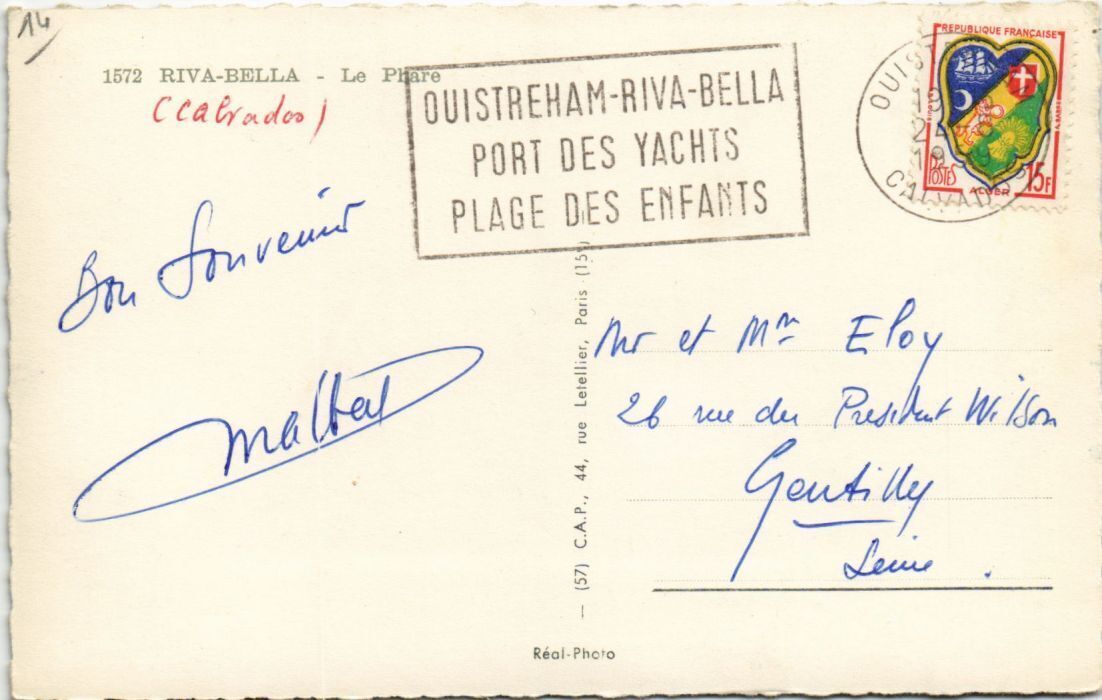 14
1572 RIVA-BELLA - Le Phare
(Calvados)
OUISTREHAM-RIVA-BELLA
PORT DES YACHTS
PLAGE DES ENFANTS
REPUBLIQUE FRANÇAISE
POSTES
ALGER
15F
Bon Souvenir
Mr et Mm Eloy
26 rue du President Wilson
Gentilly
Seine.
(57) C.A.P., 44, rue Letellier, Paris (15
Réal-Photo